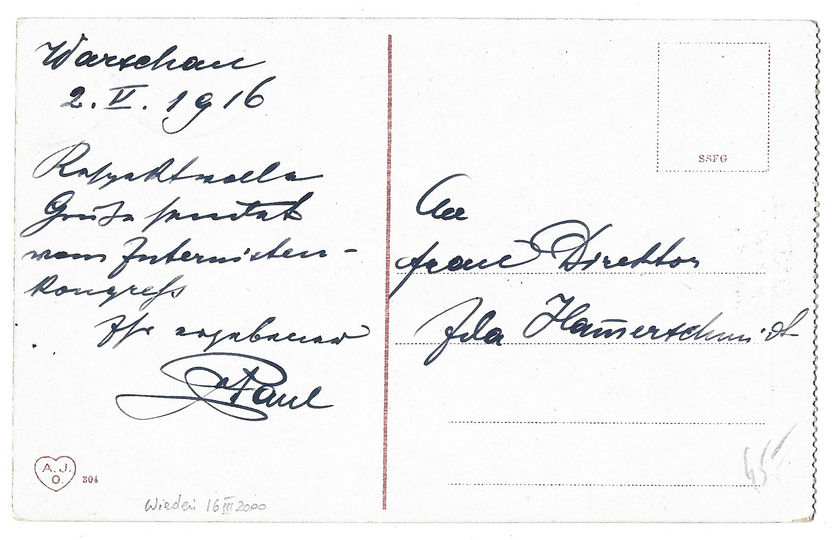 Warschau
2. V. 1916
Respektvolle
Grüße sendet
vom Internisten-
kongreß
Ihr ergebener
Paul
A. J.
O.
304
Wiedeń 16 III 2000
SSFG
An
Frau Direktor
Ida Ham̄erschmidt
45